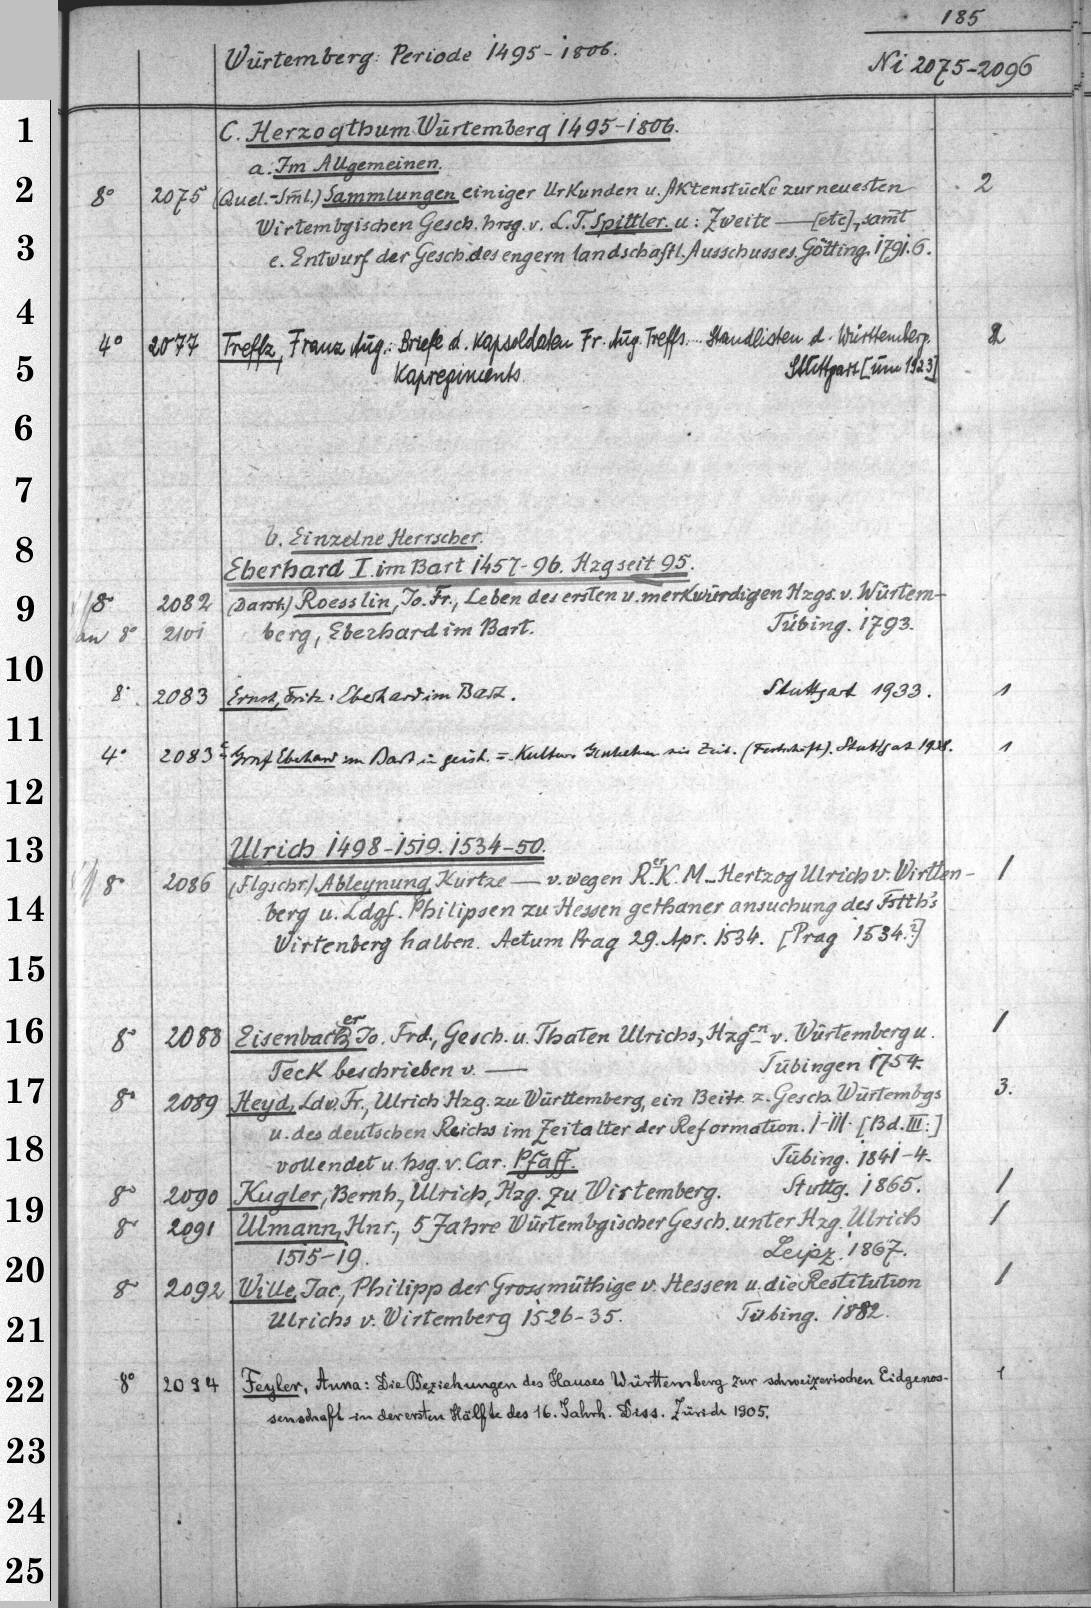 185
Würtemberg: Periode 1495-1806.
Ni 2075-2096
1
C. Herzogthum Würtemberg 1495-1806.
a. Im Allgemeinen.
2
8° 2075 (Quel.-Sml.) Sammlungen einiger Urkunden u. Aktenstücke zur neuesten 2
Wirtembgischen Gesch. hrsg. v. L.T. Spittler. u: Zweite — [etc], samt
3
e. Entwurf der Gesch. des engern landschaftl. Ausschusses. Götting. 1791.6.
4
4° 2077 Treffz, Franz Aug.: Briefe d. Kapsoldaten Fr. Aug. Treffz... Standlisten d. Württemberg. 2
5
Kapregiments. Stuttgart [um 1923]
6
7
8
b. Einzelne Herrscher.
Eberhard I. im Bart 1457-96. Hzg seit 95.
9
8° 2082 (Darst.) Roesslin, Jo. Fr., Leben des ersten u. merkwürdigen Hzgs. v. Würtem-
an 8° 2101 berg, Eberhard im Bart. Tübing. 1793.
10
8° 2083 Ernst, Fritz: Eberhard im Bart. Stuttgart 1933. 1
11
4° 2083 Graf Eberhard im Bart in geist. = Kultur. (Festschrift). Stuttgart 1938. 1
12
13
Ulrich 1498-1519. 1534-50.
8° 2086 (Flgschr.) Ableynung, Kurtze — v. wegen R.er K. M. Hertzog Ulrich v. Wirtten- 1
14
berg u. Ldgf. Philipsen zu Hessen gethaner ansuchung des Fstth's
Wirtenberg halben. Actum Prag 29. Apr. 1534. [Prag 1534.?]
15
16
8° 2088 Eisenbach, er Jo. Frd., Gesch. u. Thaten Ulrichs, Hzgen v. Würtemberg u. 1
Teck beschrieben v. — Tübingen 1754.
17
8° 2089 Heyd, Ldw. Fr., Ulrich Hzg. zu Württemberg, ein Beitr. z. Gesch. Würtembgs 3.
u. des deutschen Reichs im Zeitalter der Reformation. I-III. [Bd. III:]
18
vollendet u. hsg. v. Car. Pfaff. Tübing. 1841-4.
19
8° 2090 Kugler, Bernh., Ulrich, Hzg. zu Wirtemberg. Stuttg. 1865. 1
8° 2091 Ulmann, Hnr., 5 Jahre Würtembgischer Gesch. unter Hzg. Ulrich 1
1515-19. Leipz. 1867.
20
8° 2092 Wille, Jac., Philipp der Grossmüthige v. Hessen u. die Restitution 1
21
Ulrichs v. Wirtemberg 1526-35. Tübing. 1882.
22
8° 2094 Feyler, Anna: Die Beziehungen des Hauses Württemberg zur schweizerischen Eidgenos- 1
senschaft in der ersten Hälfte des 16. Jahrh. Diss. Zürich 1905.
23
24
25